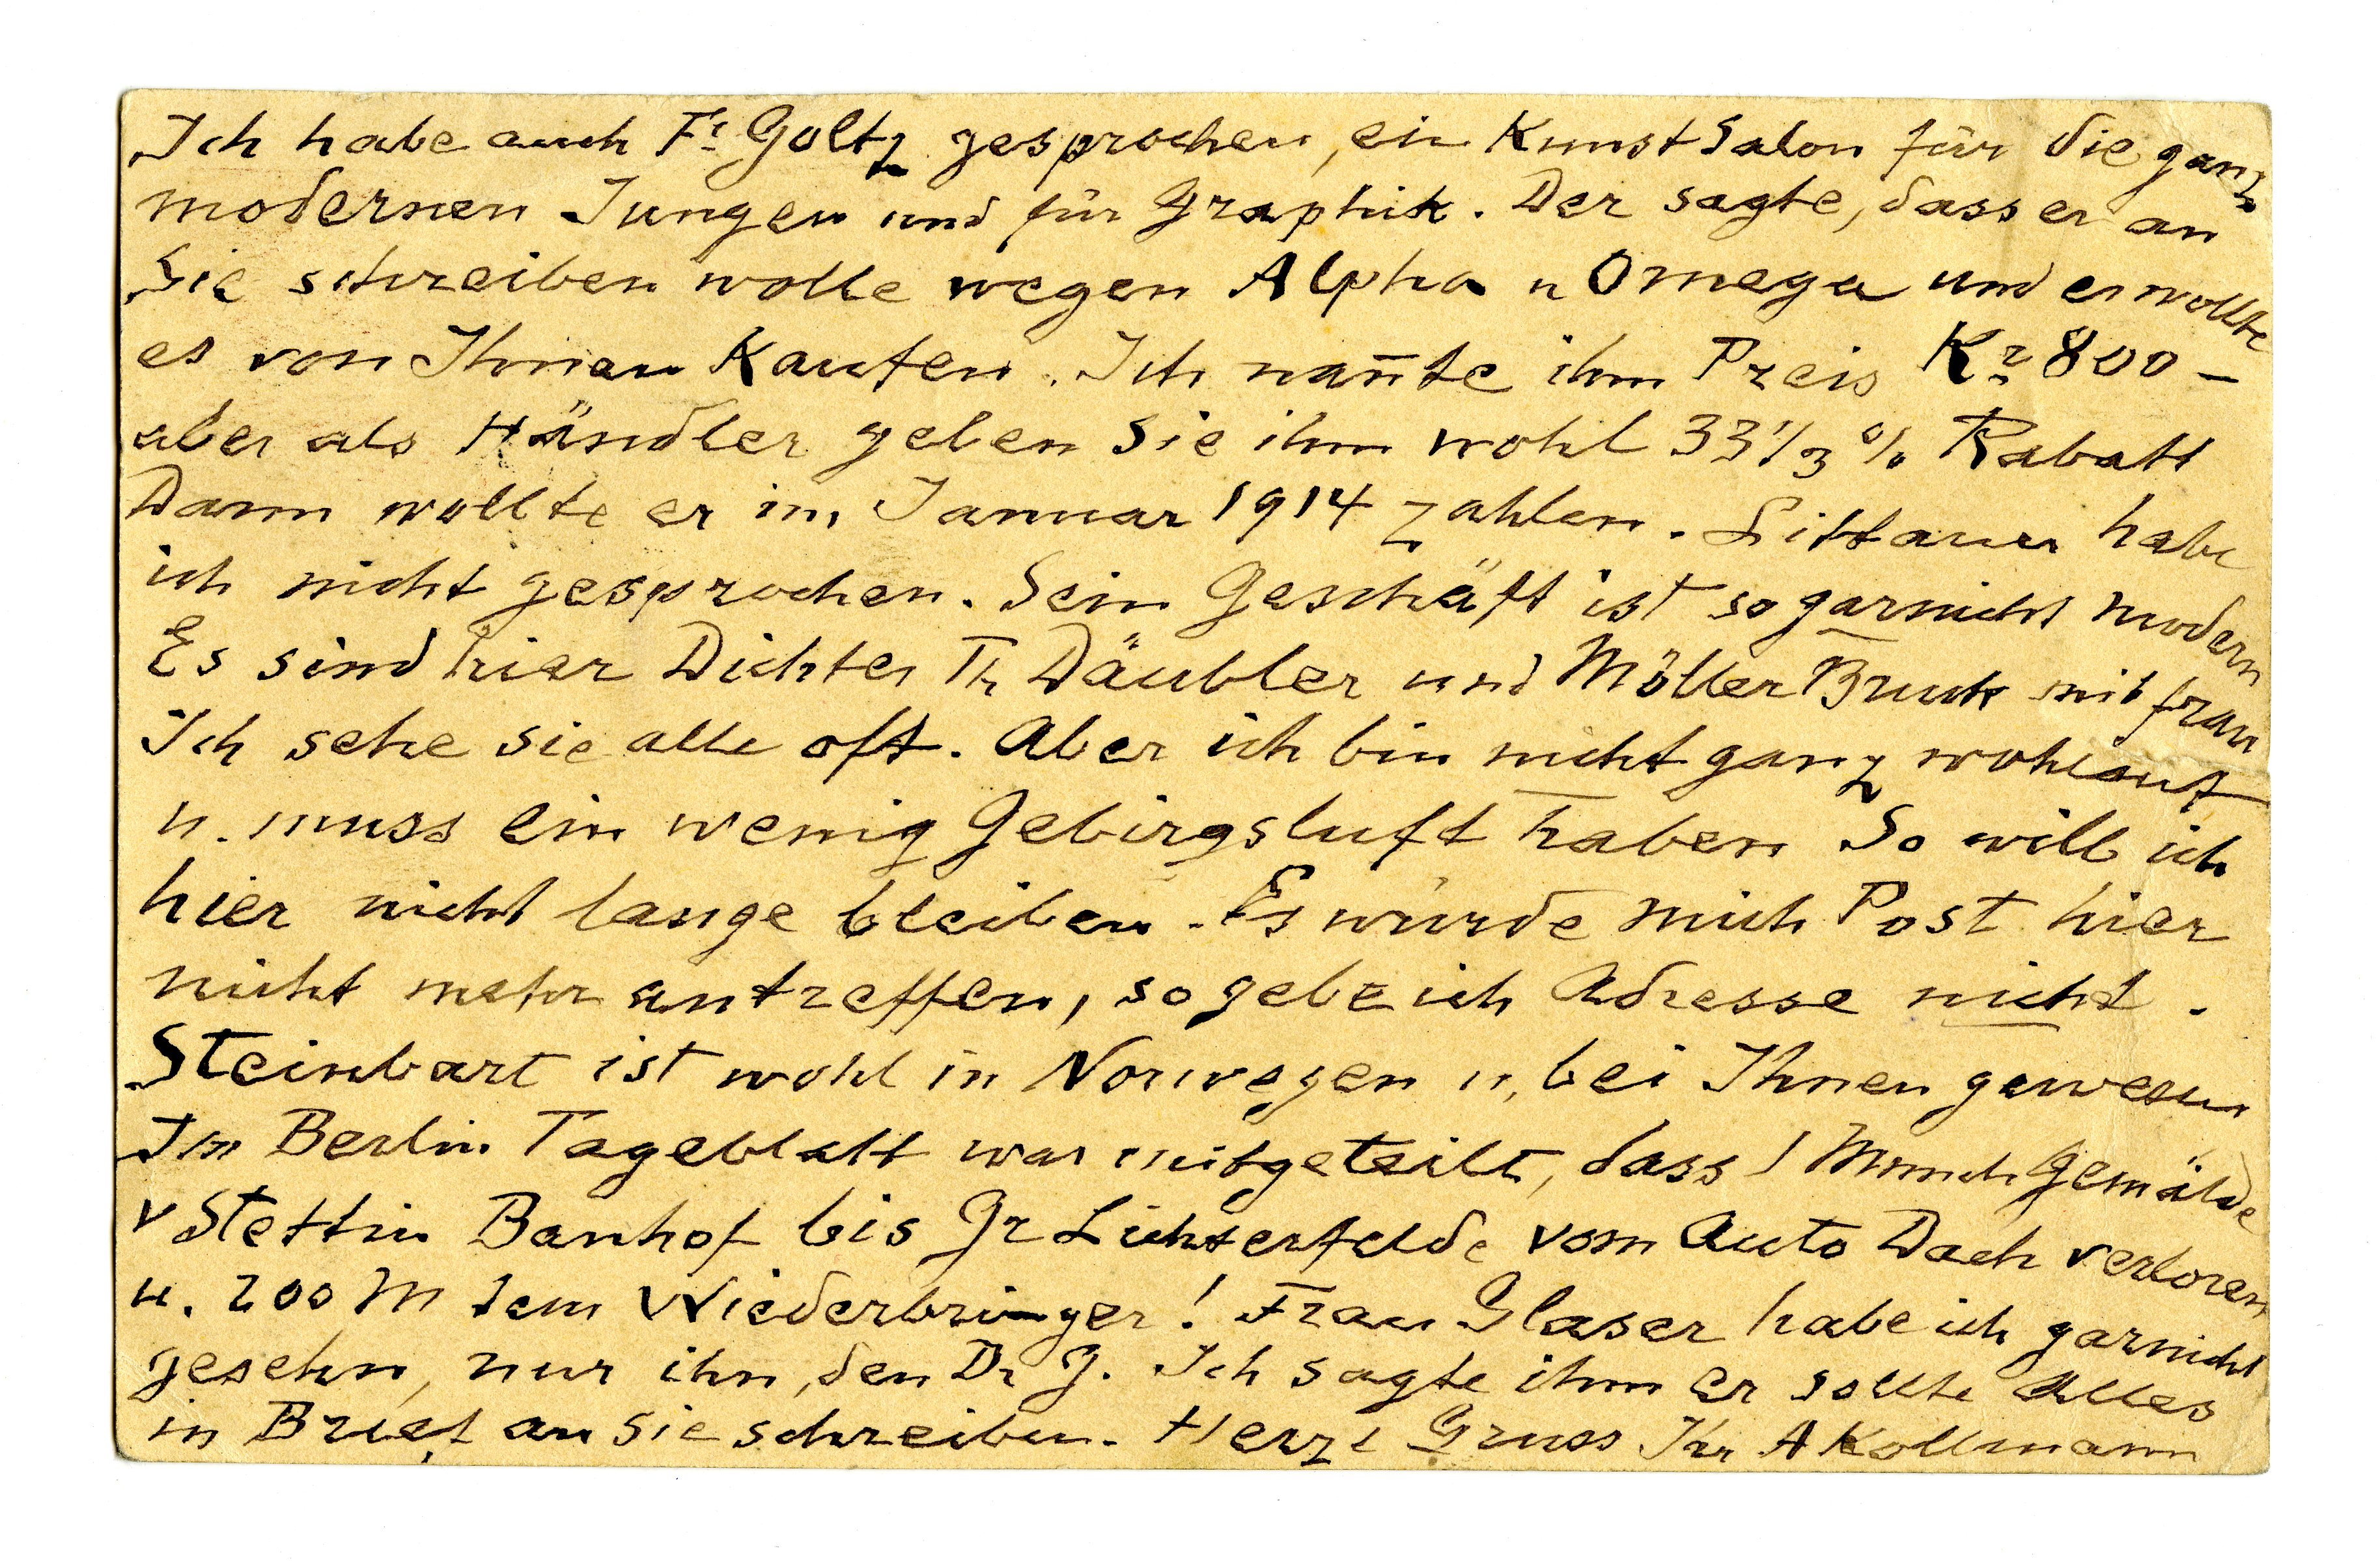 Ich habe auch Fr Goltz gesprochen, ein Kunst Salon für die ganz
modernen Jungen und für Graphik. Der sagte, dass er an
Sie schreiben wolle wegen Alpha u Omega und er wollte
es von Ihnen Kaufen. Ich nan̄te ihm Preis Kr 800 –
aber als Händler geben Sie ihm wohl 33 1/3 % Rabatt
Dann wollte er im Januar 1914 zahlen. Littauer habe
ich nicht gesprochen. Sein Geschäft ist so garnicht modern
Es sind hier Dichter Th Däubler und Möller Bruck mit Frau
Ich sehe sie alle oft. Aber ich bin nicht ganz wohlauf
u. muss ein wenig Gebirgsluft haben So will ich
hier nicht lange bleiben. Es würde mich Post hier
nicht mehr antreffen, so gebe ich Adresse nicht.
Steinbart ist wohl in Norwegen u, bei Ihnen gewesen
Im Berlin Tageblatt war mitgeteilt, dass 1 Munch Gemälde
v Stettin Banhof bis Gr Lichterfelde vom Auto Dach verloren
u. 200 M dem Wiederbringer! Frau Glaser habe ich garnicht
gesehn, nur ihn, den Dr G. Ich sagte ihm er sollte Alles
in Brief an Sie schreiben. Herzl Gruss Ihr A Kollmann